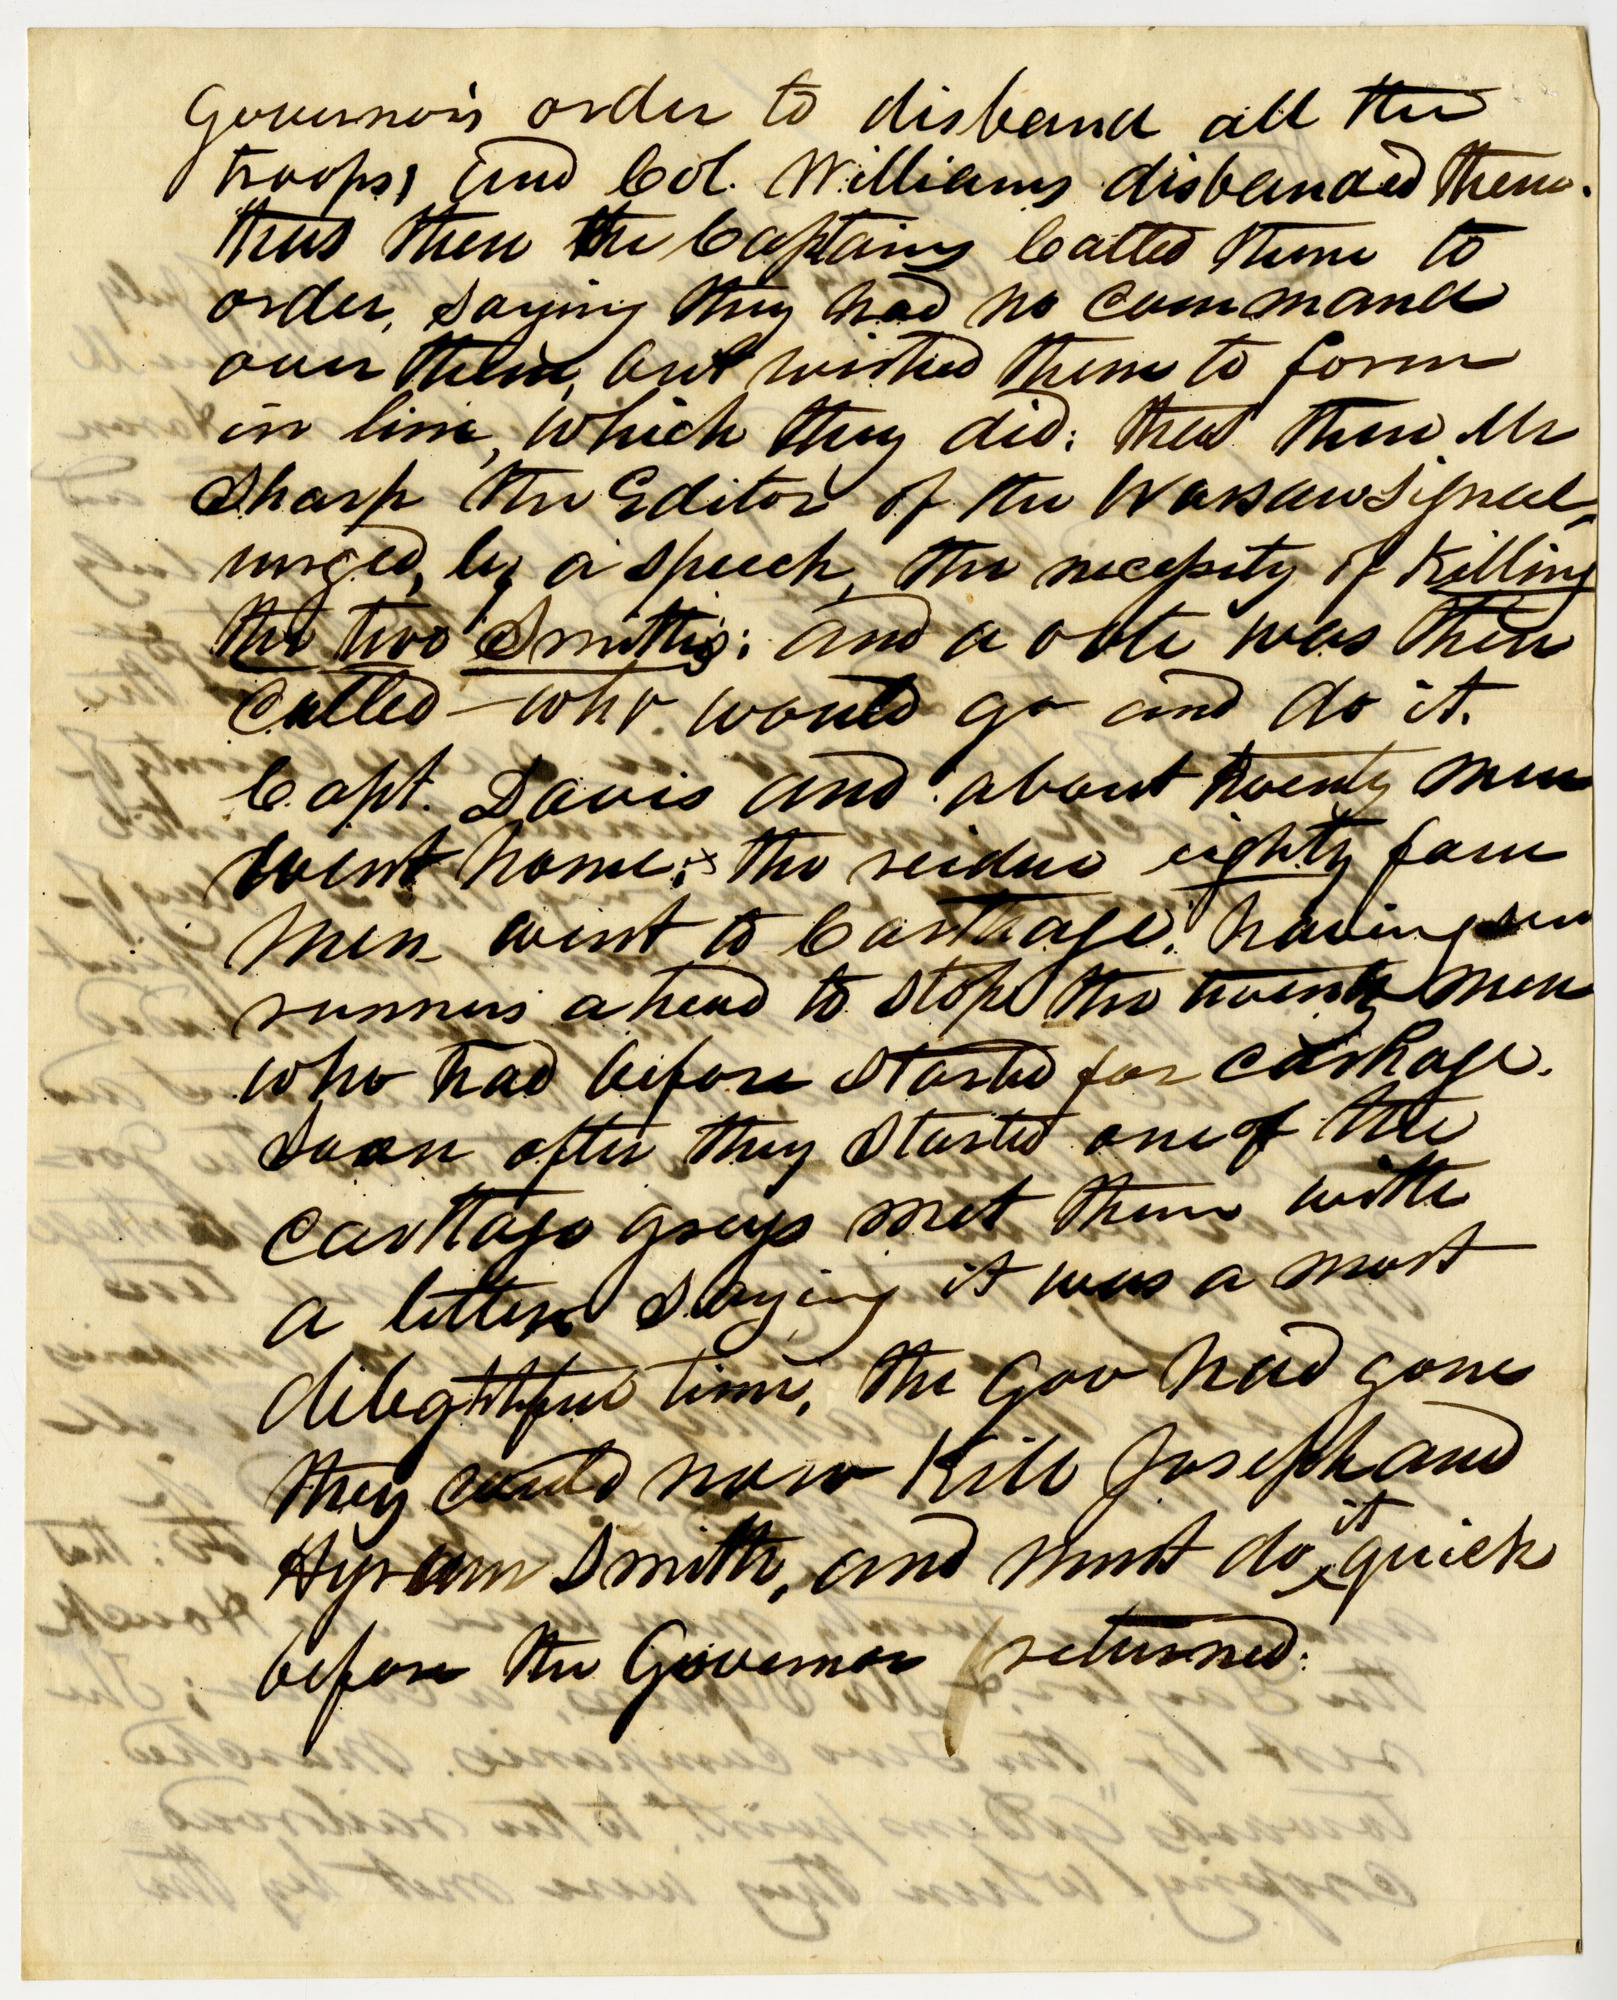 Governor's order to disband all the
troops; and Col. Williams disbanded them.
that then the Captains Called them to
order, saying they had no command
over them, but wished them to form
in line, which they did: that then Mr
Sharp the Editor of the Warsaw Signal,
urged, by a speech, the necessity of Killing
the two Smiths; and a vote was then
Called — who would go and do it.
Capt. Davis and about twenty men
went home; & the residue eighty four
men went to Carthage: having sen
runners ahead to stop the twenty men
who had before started for Carthage.
Soon after they started one of the
Carthage greys met them with
a letter saying it was a most
delightful time, the Gov had gone
they could now Kill Joseph and
Hyram Smith, and must do it quick
before the Governor returned: